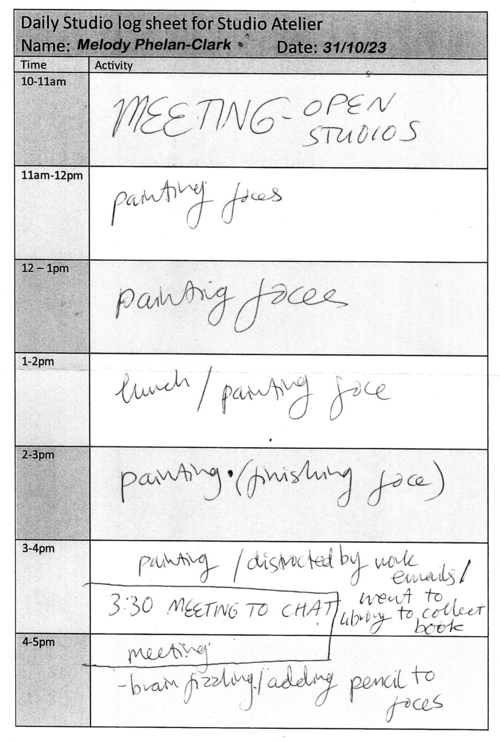 Daily Studio log sheet for Studio Atelier
Name: Melody Phelan-Clark Date: 31/10/23
Time Activity
10-11am
MEETING - OPEN
STUDIOS
11am-12pm
painting faces
12 – 1pm
painting faces
1-2pm
lunch / painting face
2-3pm
painting (finishing face)
3-4pm
painting / distracted by work
emails /
went to
library to collect
book
3:30 MEETING TO CHAT
4-5pm
meeting
- brain fizzling / adding pencil to
faces